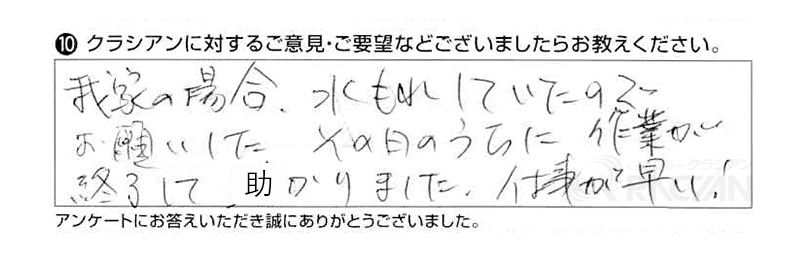 ⑩ クラシアンに対するご意見・ご要望などございましたらお教えください。
我家の場合、水もれしていたので
お願いした、その日のうちに作業が
終了して助かりました。仕事が早い!
アンケートにお答えいただき誠にありがとうございました。